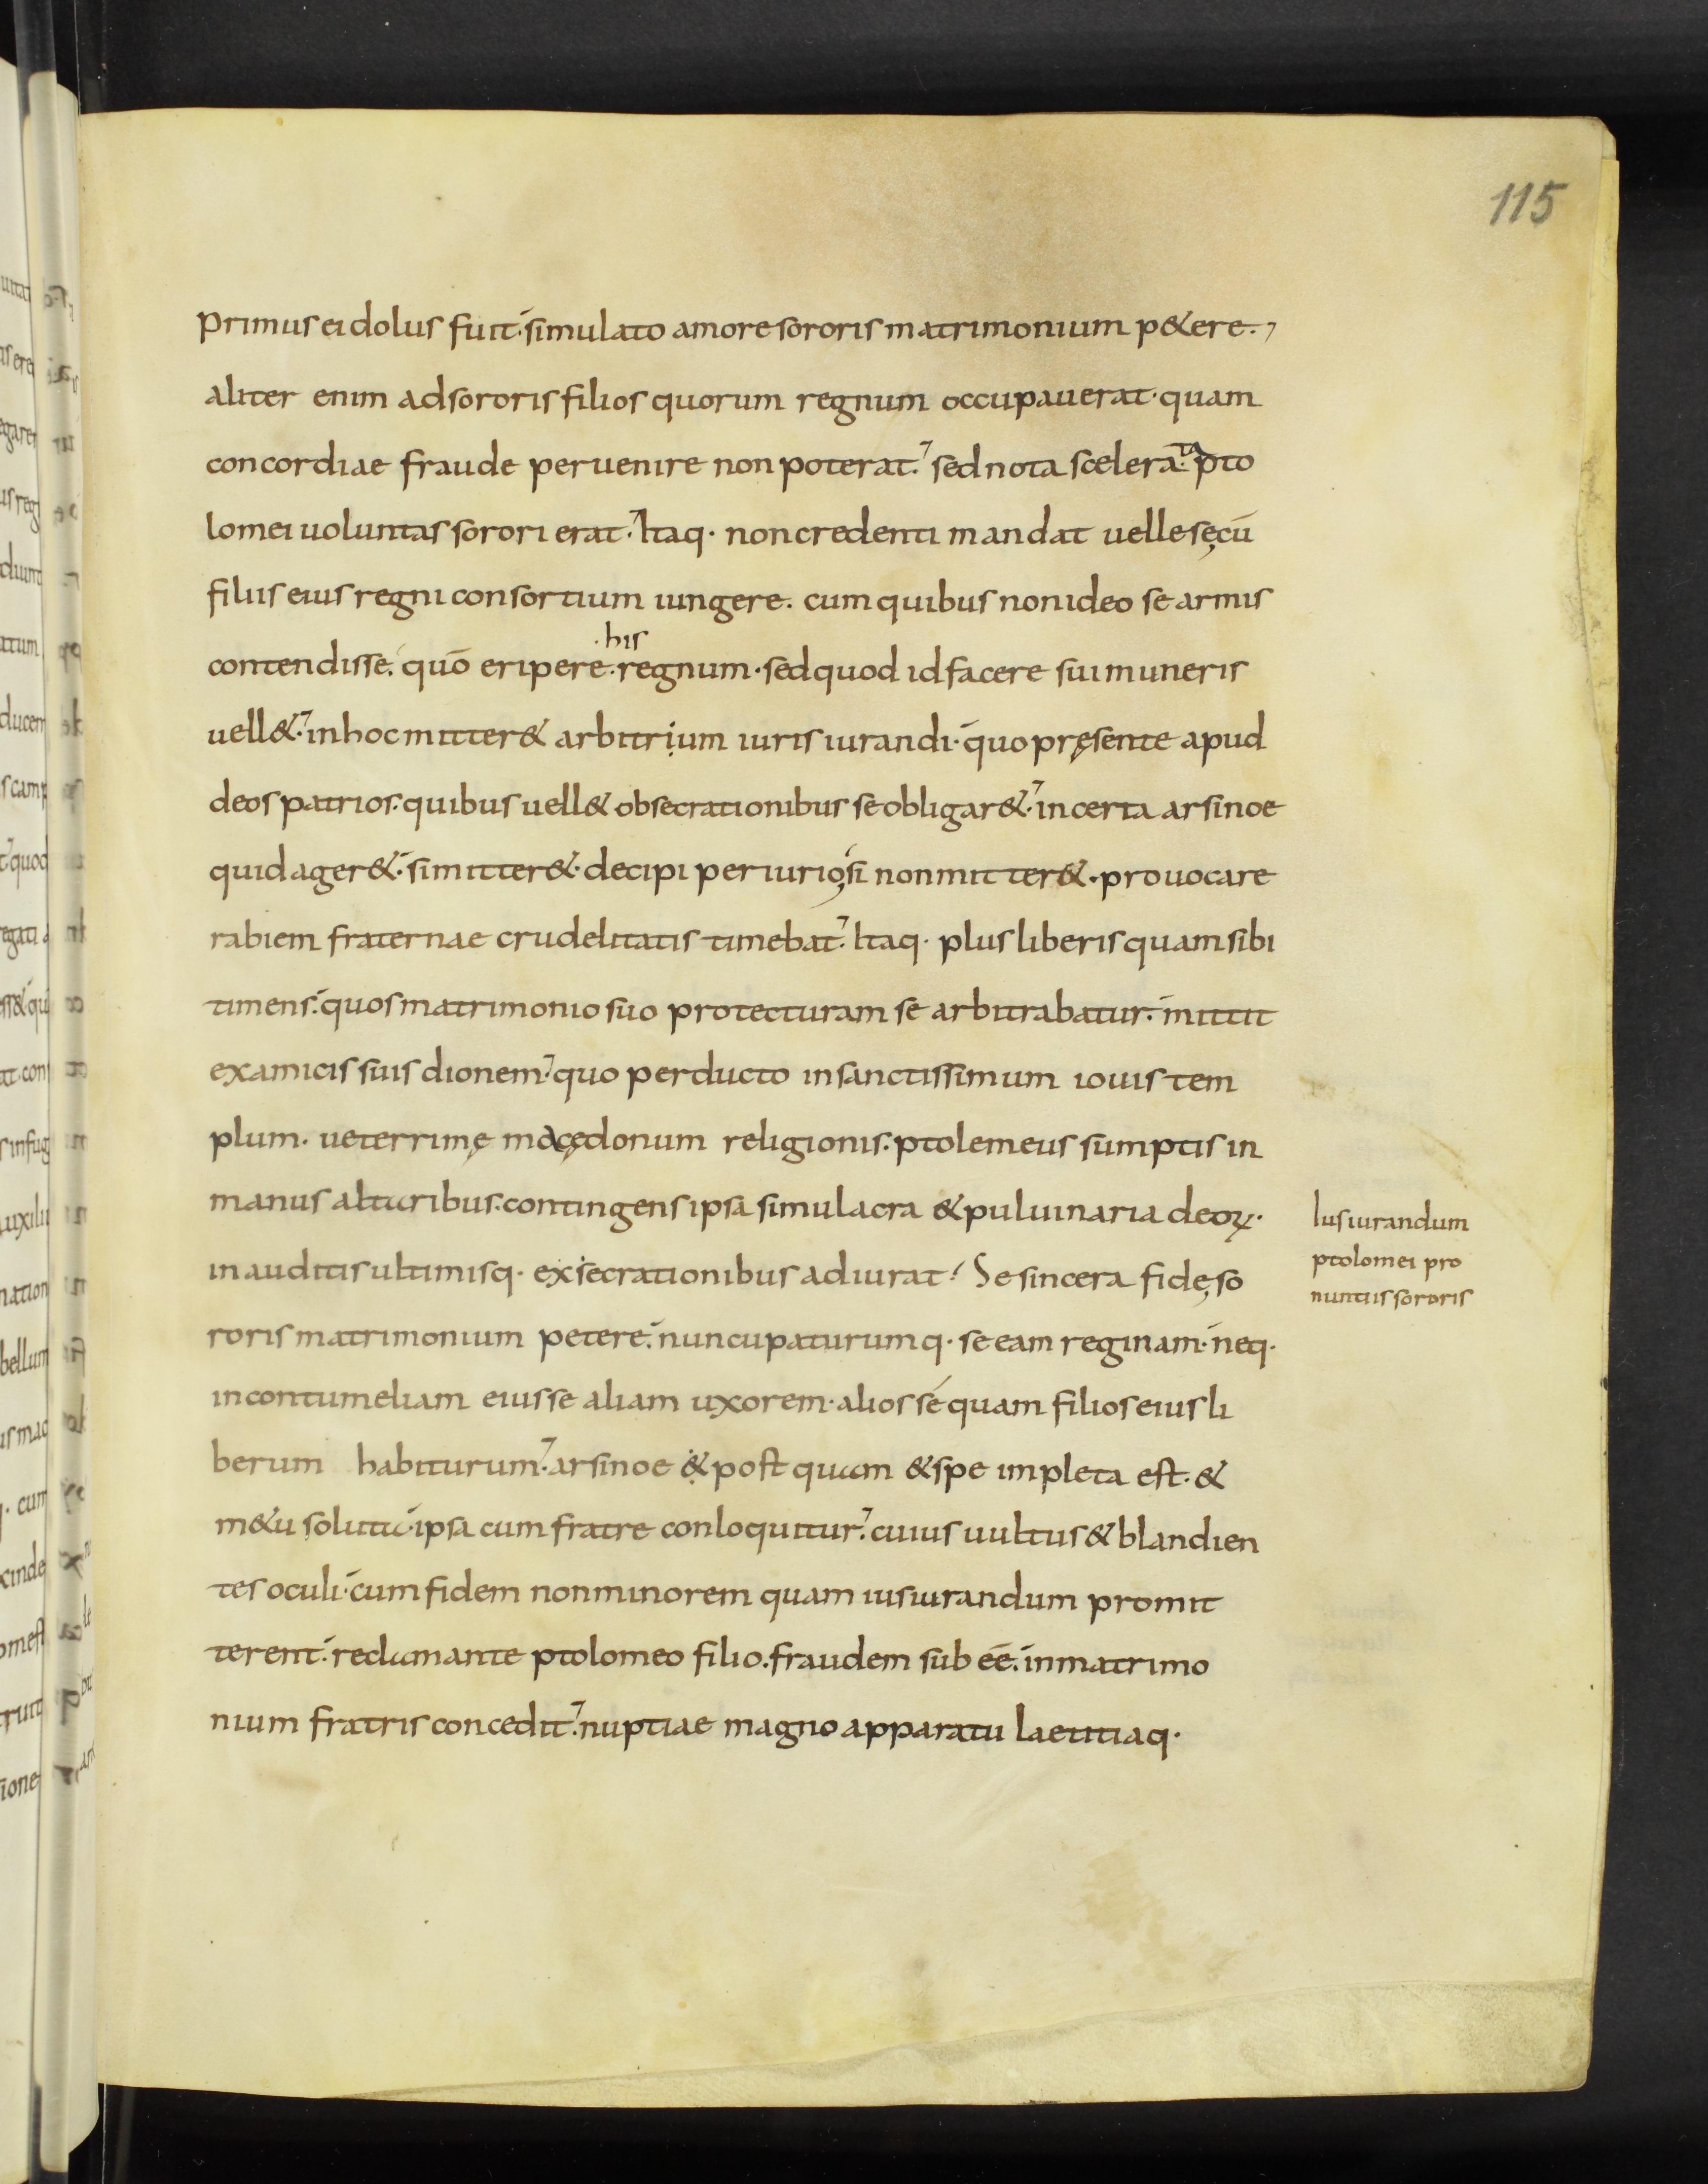 115
primus ei dolus fuit· simulato amore sororis matrimonium p&ere·,
aliter enim ad sororis filios quorum regnum occupauerat· quam
concordiae fraude peruenire non poterat· sed nota scelerata pto
lomei uoluntas sorori erat· Itaq· non credenti mandat uelle se cū
filiis eius regni consortium iungere· cum quibus non ideo se armis
contendisse· quō eripere· his regnum· sed quod id facere sui muneris
uell&· in hoc mitter& arbitrium iuris iurandi· quo pręsente apud
deos patrios· quibus uell& obsecrationibus se obligar&· incerta arsinoe
quid ager&· si mitter&· decipi periurio, si non mitter&· prouocare
rabiem fraternae crudelitatis timebat· Itaq· plus liberis quam sibi
timens· quos matrimonio suo protecturam se arbitrabatur· mittit
ex amicis suis dionem· quo perducto in sanctissimum iouis tem
plum· ueterrimę macędonum religionis· ptolemeus sumptis in
manus altaribus· contingens ipsa simulacra & puluinaria deoꝝ·
inauditis ultimisq· exsecrationibus adiurat· Se sincera fide, so
roris matrimonium petere· nuncupaturumq· se eam reginam· neq·
in contumeliam eius se aliam uxorem· alios sé quam filios eius li
berum habiturum· arsinoe & postquam & spe impleta est· &
m&u soluta· ipsa cum fratre conloquitur· cuius uultus & blandien
tes oculi· cum fidem non minorem quam iusiurandum promit
terent· reclamante ptolomeo filio· fraudem sub eē· in matrimo
nium fratris concedit· nuptiae magno apparatu laetitiaq·
Iusiurandum
ptolomei pro
nuntiis sororis